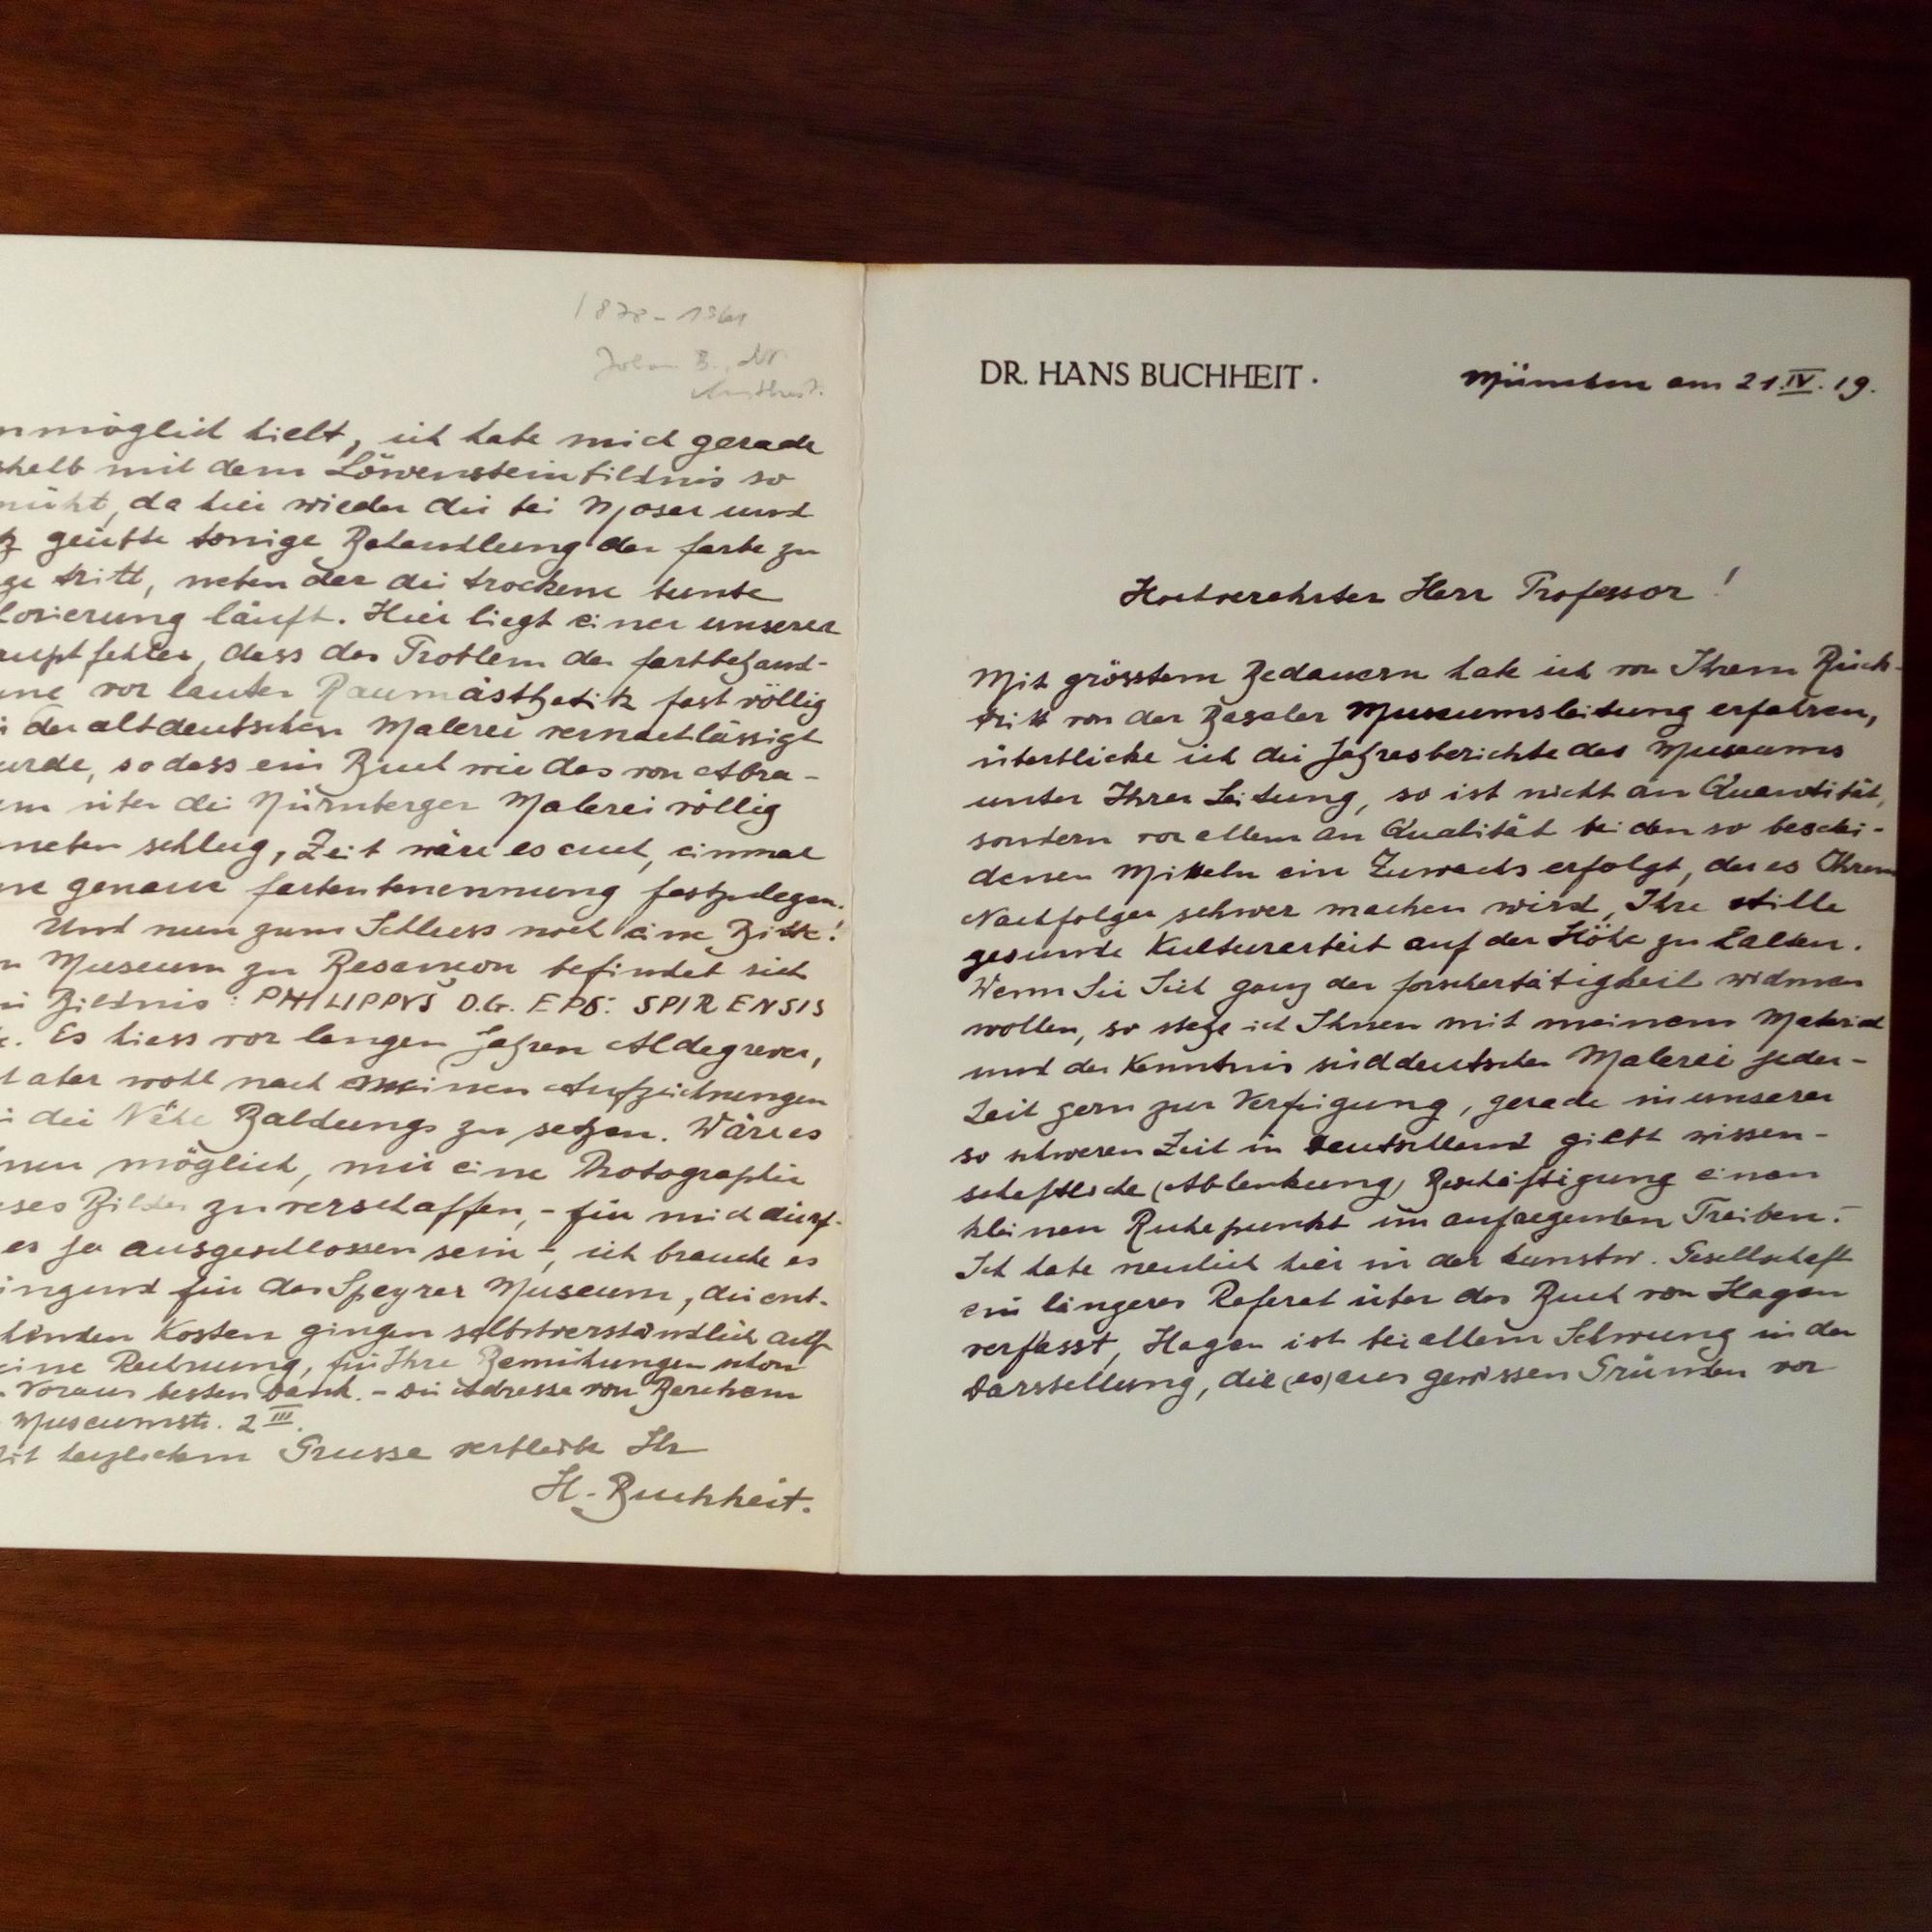 DR. HANS BUCHHEIT.
München am 21.IV.19.
Hochverehrter Herr Professor!
Mit grösstem Bedauern habe ich von Ihrem Rück-
tritt von der Baseler Museumsleitung erfahren,
überblicke ich die Jahresberichte des Museums
unter Ihrer Leitung, so ist nicht an Quantität,
sondern vor allem an Qualität bei den so beschei-
denen Mitteln ein Zuwachs erfolgt, der es Ihrem
Nachfolger schwer machen wird, Ihre stille
gesunde Kulturarbeit auf der Höhe zu halten.
Wenn Sie Sich ganz der Forschertätigkeit widmen
wollen, so stehe ich Ihnen mit meinem Material
und der Kenntnis süddeutscher Malerei jeder-
zeit gern zur Verfügung, gerade in unserer
so schweren Zeit in Deutschland giebt wissen-
schaftliche (Ablenkung) Beschäftigung einen
kleinen Ruhepunkt im aufregenden Treiben.-
Ich habe neulich hier in der kunstw. Gesellschaft
ein längeres Referat über das Buch von Hagen
verfasst, Hagen ist bei allem Schwung in der
Darstellung, die (es) aus gewissen Gründen vor
1878-1961
nmöglich hielt, ich habe mich gerade
shalb mit dem Löwensteinbildnis so
müht, da hier wieder die bei Moser und
tz geübte tonige Behandlung der Farbe zu
ge tritt, neben der die trockene bunte
lorierung läuft. Hier liegt einer unserer
auptfehler, dass das Problem der Farbbehand-
ung vor lauter Raumästhetik fast völlig
i der altdeutschen Malerei vernachlässigt
urde, so dass ein Buch wie das von Abra-
am über die Nürnberger Malerei völlig
neben schlug, Zeit wäre es auch, einmal
ne genaue Farbenbenennung festzulegen.
Und nun zum Schluss noch eine Bitte!
m Museum zu Besancon befindet sich
in Bildnis: PHILIPPVS D.G. EPS: SPIRENSIS
c. Es hiess vor langen Jahren Aldegrever,
t aber wohl nach meinen Aufzeichnungen
in die Nähe Baldungs zu setzen. Wäre es
hnen möglich, mir eine Photographie
eses Bildes zu verschaffen, - für mich dürf-
es ja ausgeschlossen sein -, ich brauche es
ingend für das Speyrer Museum, die ent-
tehenden Kosten gingen selbstverständlich auf
eine Rechnung, für Ihre Bemühungen schon
m Voraus besten Dank. - Die Adresse von Berchem
Museumstr. 2 III.
Mit herzlichem Grusse verbleibe Ihr
H. Buchheit.